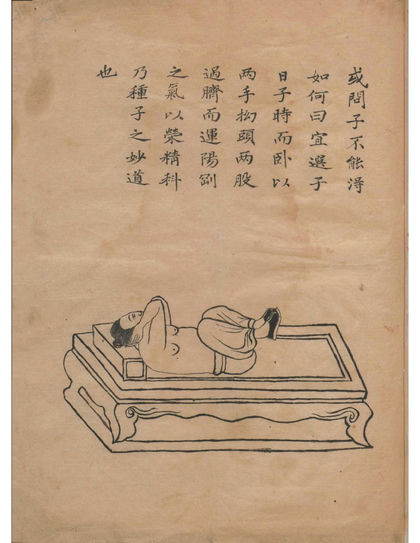 或問子不能得
如何曰宜選子
日子時而卧以
两手頭两股
過臍而運陽剛
之氣以榮精科
乃種子之妙道
也